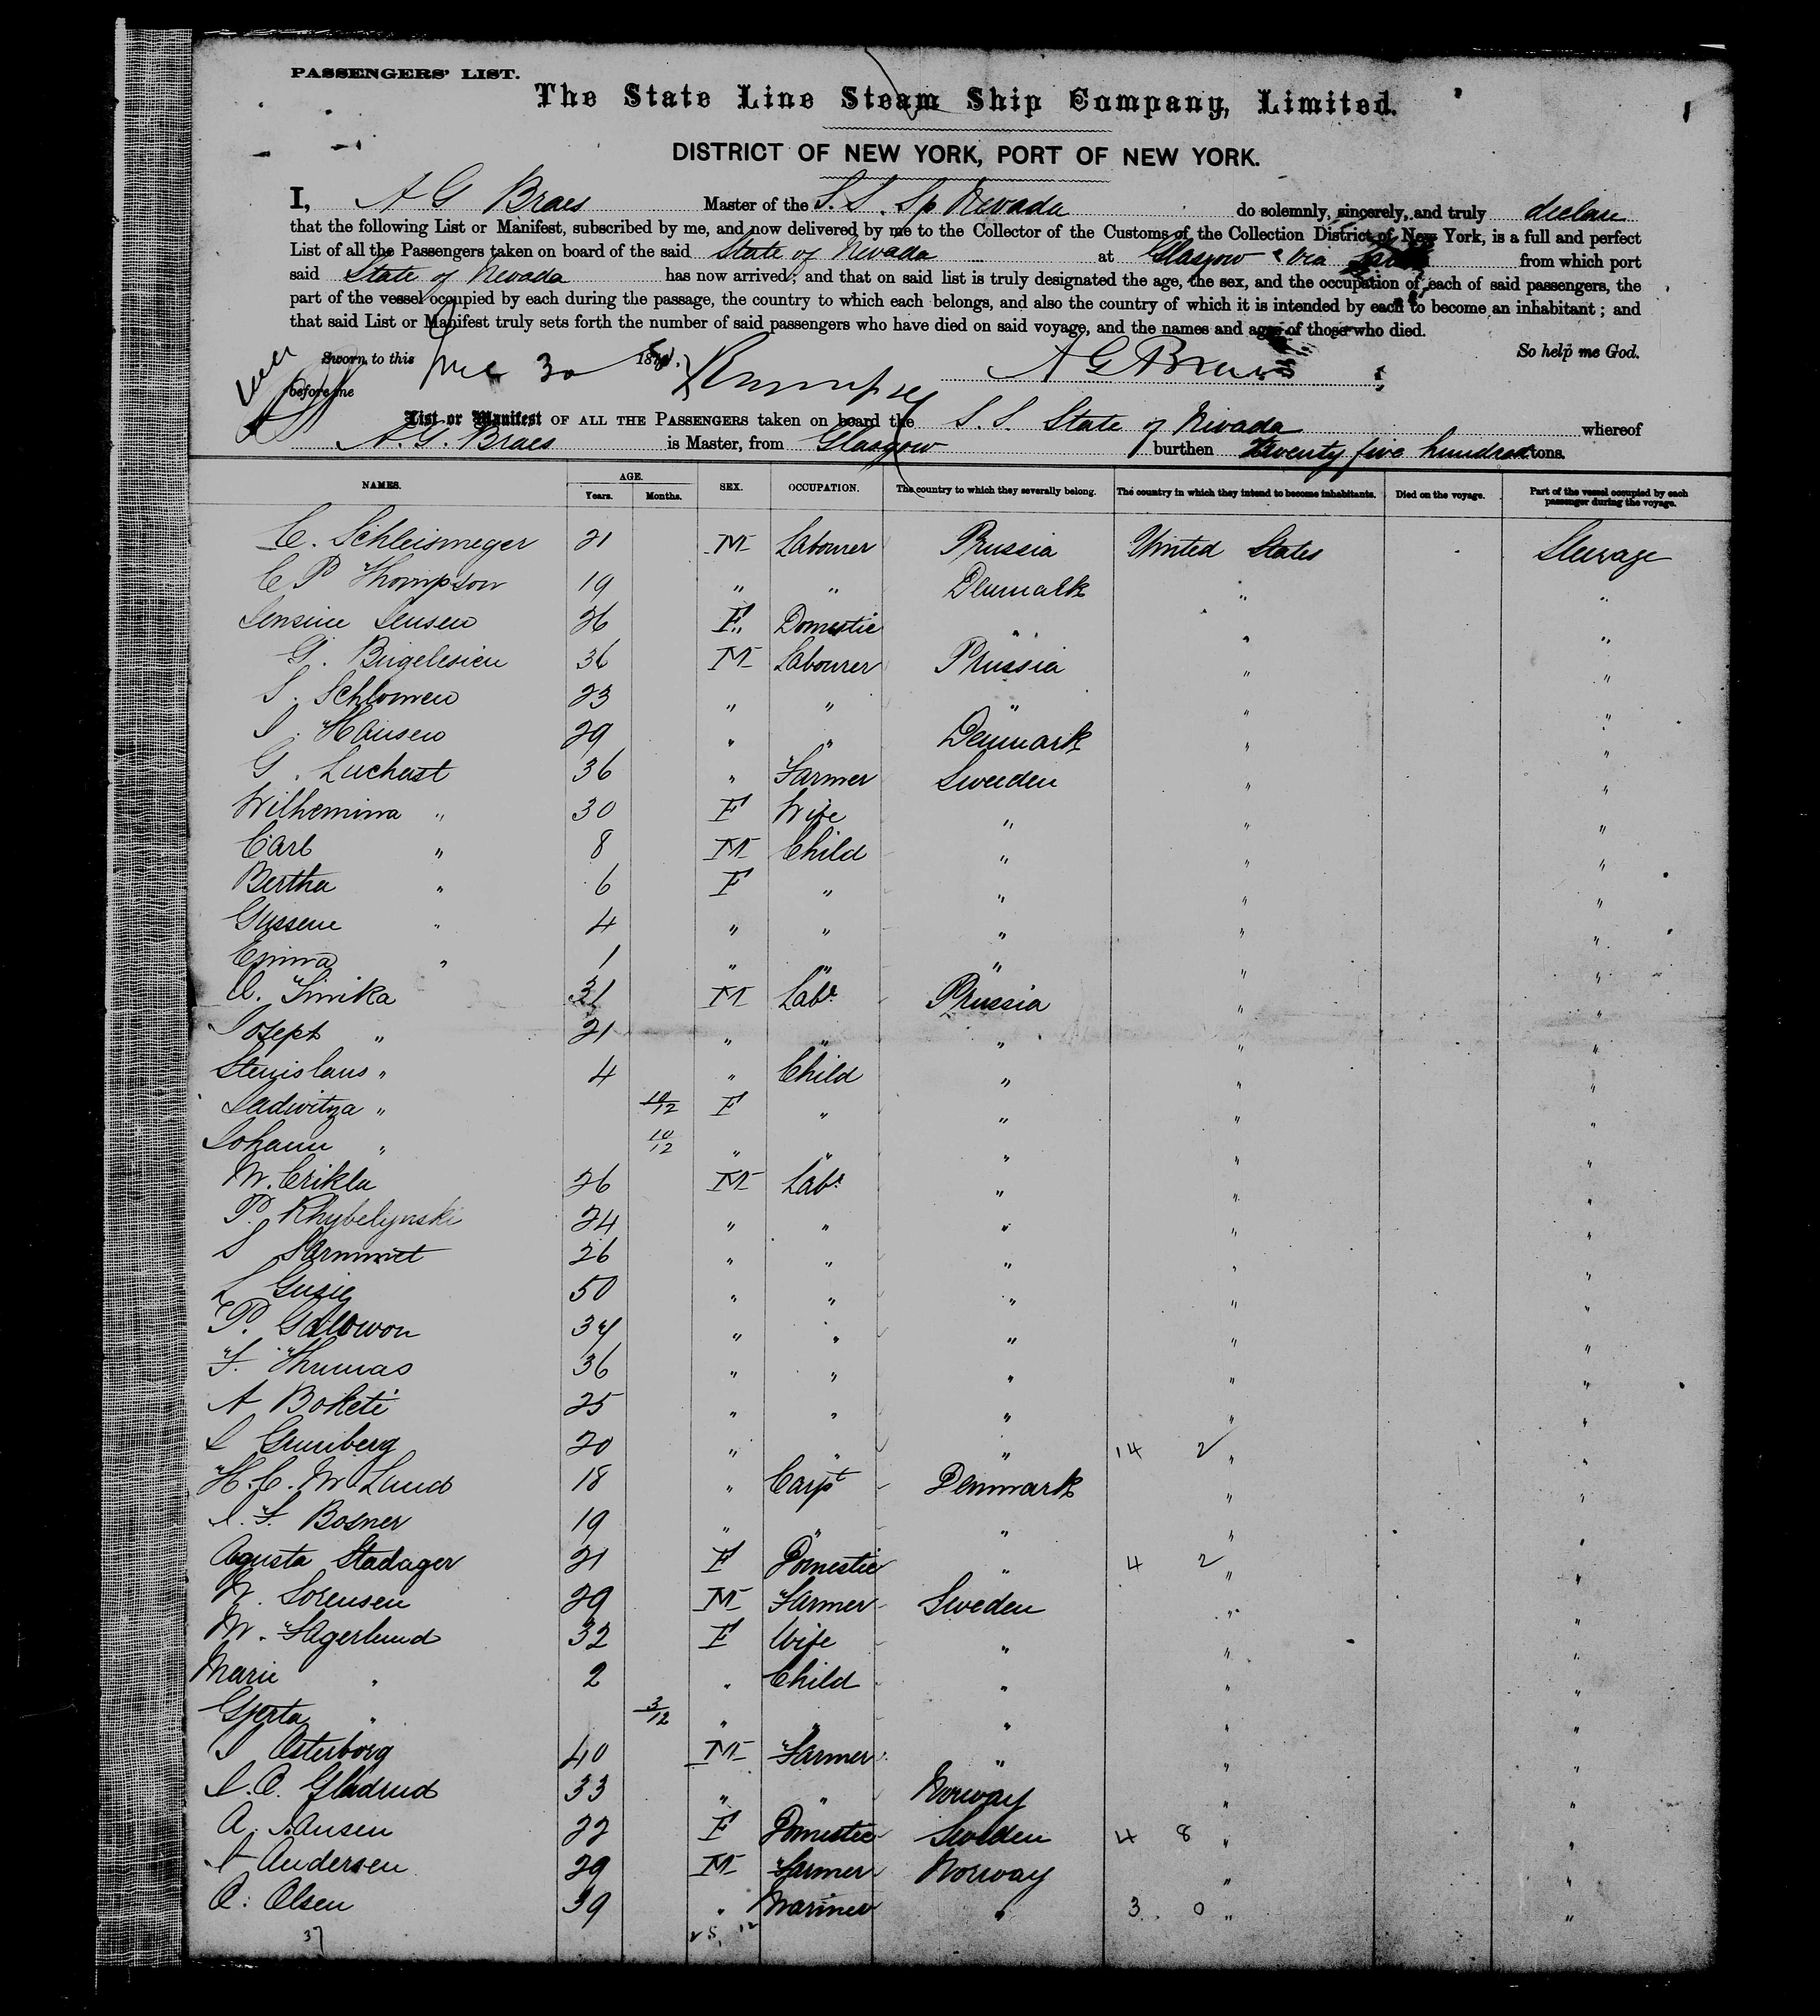 PASSENGERS' LIST.
The State Line Steam Ship Company, Limited.
DISTRICT OF NEW YORK, PORT OF NEW YORK.
I, A G Braes Master of the S. S. Sp Nevada do solemnly, sincerely, and truly declare
that the following List or Manifest, subscribed by me, and now delivered by me to the Collector of the Customs of the Collection District of New York, is a full and perfect
List of all the Passengers taken on board of the said State of Nevada at Glasgow & via from which port
said State of Nevada has now arrived; and that on said list is truly designated the age, the sex, and the occupation of each of said passengers, the
part of the vessel occupied by each during the passage, the country to which each belongs, and also the country of which it is intended by each to become an inhabitant; and
that said List or Manifest truly sets forth the number of said passengers who have died on said voyage, and the names and ages of those who died.
So help me God.
Sworn to this 30 18 A G Braes
before me
List or Manifest OF ALL THE PASSENGERS taken on board the S. S. State of Nevada whereof
A. G. Braes is Master, from Glasgow burthen Twenty five hundred tons.
NAMES. AGE. Years. Months. SEX. OCCUPATION. The country to which they severally belong. The country in which they intend to become inhabitants. Died on the voyage. Part of the vessel occupied by each passenger during the voyage.
C. Schleismeger 21 M Labourer Prussia United States Steerage
C P Thompson 19 " " Denmark " "
Jensine Jensen 26 F " Domestic " " "
G. Bugelesien 36 M Labourer Prussia " "
J. Schlomen 23 " " " " "
J. Hansen 29 " " Denmark " "
G. Luchast 36 " Farmer Sweden " "
Wilhemina " 30 F Wife " " "
Carl " 8 M Child " " "
Bertha " 6 F " " " "
Gussene " 4 " " " " "
Emma " 1 " " " " "
A. Simika 31 M Labr Prussia " "
Joseph " 21 " " " " "
Stenislaus " 4 " Child " " "
Ladwitza " 10/12 F " " " "
Johann " 10/12 " " " " "
M. Crikla 26 M Labr " " "
P. Rhybelynski 24 " " " " "
S Sarmmet 26 " " " " "
L Gusig 50 " " " " "
P. Gallowon 34 " " " " "
F. Thumas 36 " " " " "
A Boketi 25 " " " " "
L Gruniberg 20 " " " 14 2 " "
H. C. M Lund 18 " Carpt Denmark " "
J. F. Bosner 19 " " " " "
Agusta Stadager 21 F Domestic " 4 2 " "
N. Sorensen 29 M Farmer Sweden " "
M. Fagerlund 32 F Wife " " "
Marie " 2 " Child " " "
Gjerta " 3/12 " " " " "
J Osterborg 40 M Farmer " " "
J. O. Gladrud 33 " " Norway " "
A. Jansen 22 F Domestic Sweden 4 8 " "
A Andersen 29 M Farmer Norway " "
O. Olsen 39 " Mariner " 3 0 " "
37 25, 12